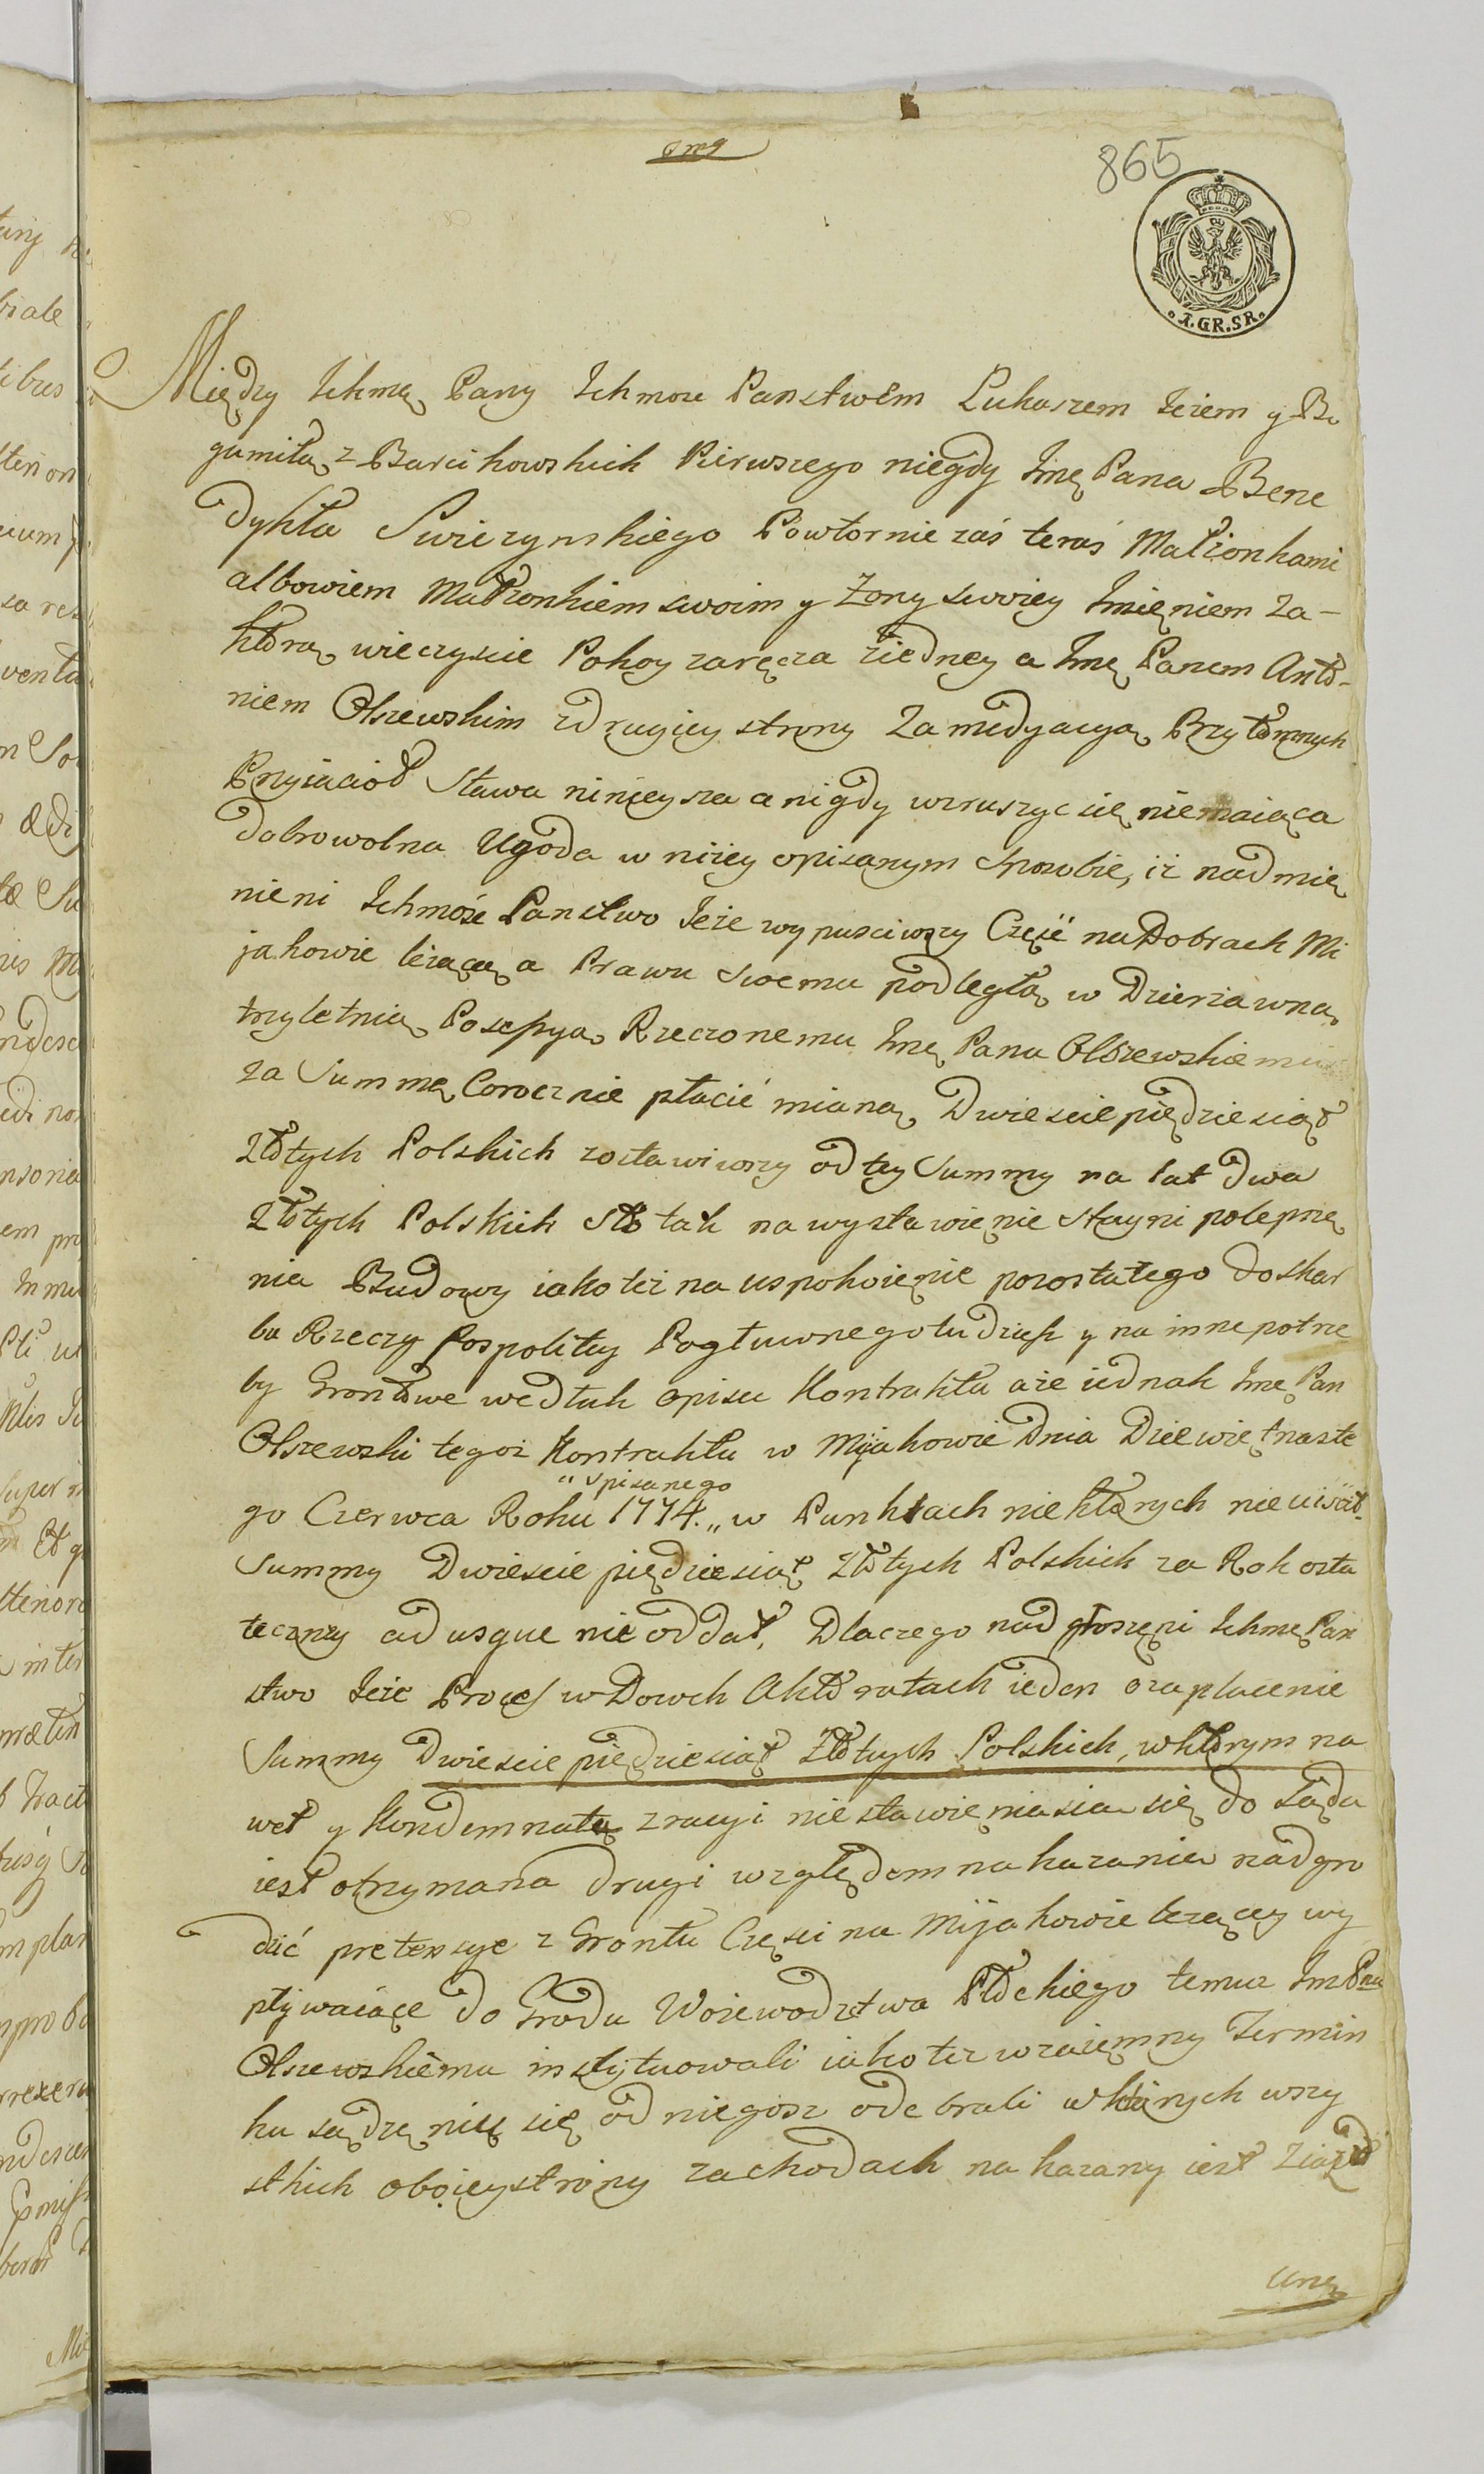 865
.4.GR.SR.
Między Ichmę Pany Ichmośc Panstwem Łukaszem Jeżem y Bo
gumiłą z Barcikowskich Pierwszego niegdy Jmę Pana Bene
dykta Swiezynskiego Powtornie zaś teraś Małżonkami
albowiem Małżonkiem swoim y Zony swoiey Jmięniem za-
ktorą wieczyscie Pokoy zaręcza ziedney a Jmę Panem Anto-
niem Olszewskim zdrugiey strony Za medyacyą Przytomnych
Przyiacioł Stawa ninięysza a nigdy wzruszyc się niemaiąca
dobrowolna Ugoda w niżey opisanym Sposobie, iż nadmie
nieni Ichmośc Panstwo Jeże wypusciwszy Częśc na Dobrach Mi
jakowie leżącą a Prawu swemu podległą w Dzierżawną
trzyletnią Possessyą Rzeczonemu Jmę Panu Olszewskiemu
za Summę Corocznie płacić mianą Dwiescie piędziesiąt
Złotych Polskich zostawiwszy od tey Summy na lat dwa
Złotych Polskich Sto tak na wystawięnie stayni polepszę
nia Budowy iako też na uspokoięnie pozostałego do skar
bu Rzeczy Pospolitey Pogłuwnego tudzież y na inne potrze
by Grontowe wedłuk opisu Kontraktu aże iednak Jmę Pan
Olszewski tegoż Kontraktu w Mijakowie Dnia Dziewiętnaste
„ spisanego
go Czerwca Roku 1774. „ w Punktach niektorych nieuiścił
Summy Dwiescie piędziesiąt Złotych Polskich za Rok osta
teczny adusque nie oddał, Dlaczego nadgłoszęni Ichmę Pan
stwo Jeże Process w Dowch Aktoratach ieden ozaplacenie
Summy Dwiescie piędziesiąt Złotych Polskich, wktorym na
wet y Kondemnata z racyi niestawięniasia się do Sądu
iest otrzymana drugi względem nakazania nadgro
dzić pretensye z Grontu Częsci na Mijakowie leżącey wy
pływaiące do Grodu Woiewodztwa Płckiego temuz ImPnu
Olszewskiemu instytuowali iako też wzaięmny Termin
ku sądzęniu się od niegosz odebrali w ktorych wszy
stkich oboięystrony zachodach nakazany iest Ziazd